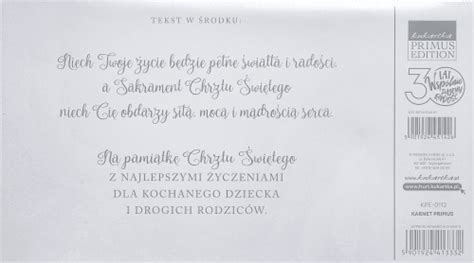 TEKST W ŚRODKU:
Niech Twoje życie będzie pełne światła i radości,
a Sakrament Chrztu Świętego
niech Cię obdarzy siłą, mocą i mądrością serca.
Na pamiątkę Chrztu Świętego
Z NAJLEPSZYMI ŻYCZENIAMI
DLA KOCHANEGO DZIECKA
I DROGICH RODZICÓW.
kukartka
PRIMUS
EDITION
30 LAT
Wspólnie
www.hurt.kukartka.pl
KPE-0112
KARNET PRIMUS
5 901924 413332